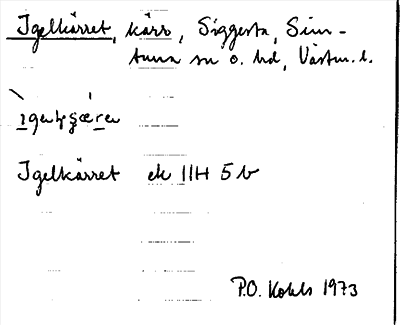 Igelkärret, kärr, Siggesta, Sim-
tuna sn o. hd, Västm. l.
Igelkärret ek 11H 5b
P.O. Kohls 1973